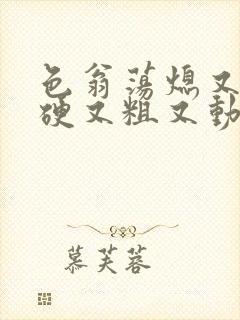 色翁荡熄又
硬又粗又動
慕芙蓉